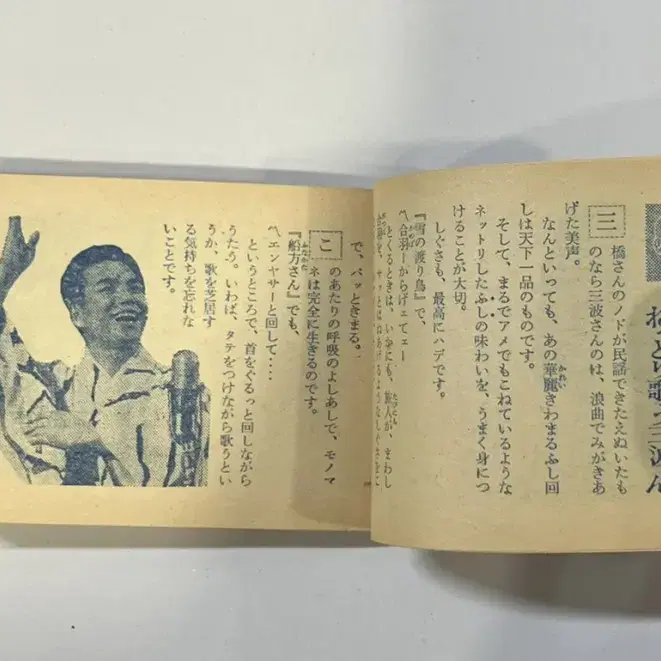 歌う三波
三橋さんのノドが民謡できたえぬいたも
のなら三波さんのは、浪曲でみがきあ
げた美声。
なんといっても、あの華麗きわまるふし回
しは天下一品のものです。
そして、まるでアメでもこねているような
ネットリしたふしの味わいを、うまく身につ
けることが大切。
しぐさも、最高にハデです。
『雪の渡り鳥』で、
〽合羽ーからげェてェー
とくるときは、いかにも、旅人が、まわし
合羽を、サッとはねあげるようなしぐさを
で、パッときまる。
このあたりの呼吸のよしあしで、モノマ
ネは完全に生きるのです。
『船方さん』でも、
〽エンヤサーと回して・・・・
というところで、首をぐるっと回しながら
うたう。いわば、タテをつけながら歌うとい
うか、歌を芝居す
る気持ちを忘れな
いことです。